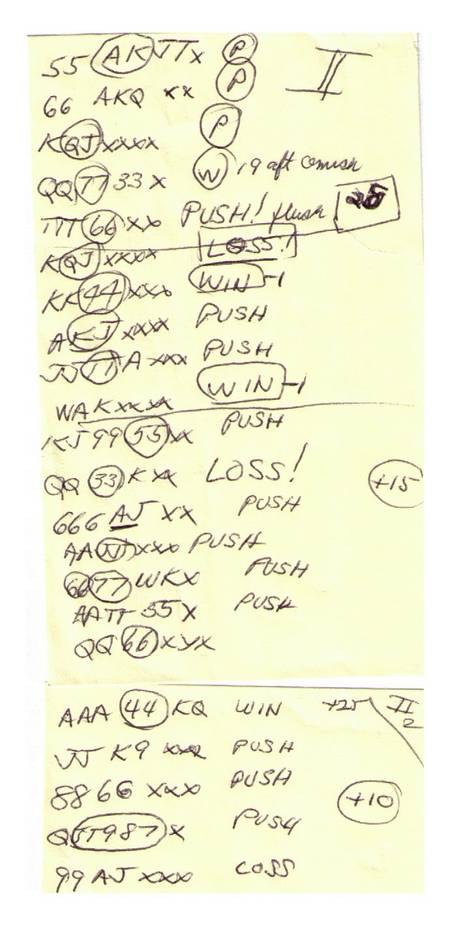 55 AK JTx P II
66 AKQ xx P
KQJxxxx P
QQ77 33 x W 19 aft comish
TTT 66 xx PUSH! flush
KQJ xxxx LOSS!
KK44xxx WIN-1
AKJ xxxx PUSH
JJTT A xxx PUSH
WAK xxxx WIN-1
KJ 99 55 x PUSH
QQ 33 K xx LOSS! +15
666 AJ xx PUSH
AA JJ xxx PUSH
66 77 WKx PUSH
AATT 55 x PUSH
QQ 66 xyx
AAA 44 KQ WIN +25 II 2
JJ K9 xxx PUSH
88 66 xxx PUSH
QJT987 x PUSH +10
99 AJ xxx LOSS